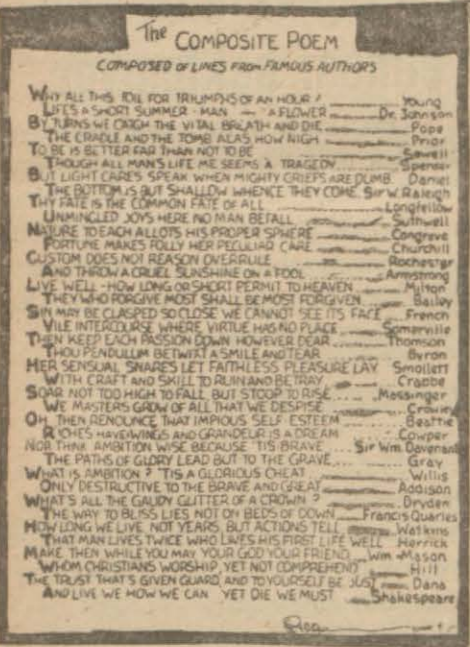 The
COMPOSITE POEM
COMPOSED OF LINES FROM FAMOUS AUTHORS
WHY ALL THIS TOIL FOR TRIUMPHS OF AN HOUR? Young
LIFE'S A SHORT SUMMER - MAN - A FLOWER Dr. Johnson
BY TURNS WE CATCH THE VITAL BREATH AND DIE Pope
THE CRADLE AND THE TOMB ALAS HOW NIGH Prior
TO BE IS BETTER FAR THAN NOT TO BE Sewell
THOUGH ALL MAN'S LIFE ME SEEMS A TRAGEDY Spenser
BUT LIGHT CARES SPEAK WHEN MIGHTY GRIEFS ARE DUMB Daniel
THE BOTTOM IS BUT SHALLOW WHENCE THEY COME Sir W. Raleigh
THY FATE IS THE COMMON FATE OF ALL Longfellow
UNMINGLED JOYS HERE NO MAN BEFALL Suthwell
NATURE TO EACH ALLOTS HIS PROPER SPHERE Congreve
FORTUNE MAKES FOLLY HER PECULIAR CARE Churchill
CUSTOM DOES NOT REASON OVERRULE Rochester
AND THROW A CRUEL SUNSHINE ON A FOOL Armstrong
LIVE WELL - HOW LONG OR SHORT PERMIT TO HEAVEN Milton
THEY WHO FORGIVE MOST SHALL BE MOST FORGIVEN Bailey
SIN MAY BE CLASPED SO CLOSE WE CANNOT SEE ITS FACE French
VILE INTERCOURSE WHERE VIRTUE HAS NO PLACE Somerville
THEN KEEP EACH PASSION DOWN HOWEVER DEAR Thomson
THOU PENDULUM BETWIXT A SMILE AND TEAR Byron
HER SENSUAL SNARES LET FAITHLESS PLEASURE LAY Smollett
WITH CRAFT AND SKILL TO RUIN AND BETRAY Crabbe
SOAR NOT TOO HIGH TO FALL, BUT STOOP TO RISE Massinger
WE MASTERS GROW OF ALL THAT WE DESPISE Crowley
OH, THEN RENOUNCE THAT IMPIOUS SELF ESTEEM Beattie
RICHES HAVE WINGS AND GRANDEUR IS A DREAM Cowper
NOR THINK AMBITION WISE BECAUSE 'TIS BRAVE Sir Wm. Davenant
THE PATHS OF GLORY LEAD BUT TO THE GRAVE Gray
WHAT IS AMBITION? 'TIS A GLORIOUS CHEAT Willis
ONLY DESTRUCTIVE TO THE BRAVE AND GREAT Addison
WHAT'S ALL THE GAUDY GLITTER OF A CROWN? Dryden
THE WAY TO BLISS LIES NOT ON BEDS OF DOWN Francis Quarles
HOW LONG WE LIVE NOT YEARS, BUT ACTIONS TELL Watkins
THAT MAN LIVES TWICE WHO LIVES HIS FIRST LIFE WELL Herrick
MAKE THEN WHILE YOU MAY YOUR GOD YOUR FRIEND Wm - Mason
WHOM CHRISTIANS WORSHIP, YET NOT COMPREHEND Hill
THE TRUST THAT'S GIVEN GUARD, AND TO YOURSELF BE JUST Dana
AND LIVE WE HOW WE CAN YET DIE WE MUST Shakespeare